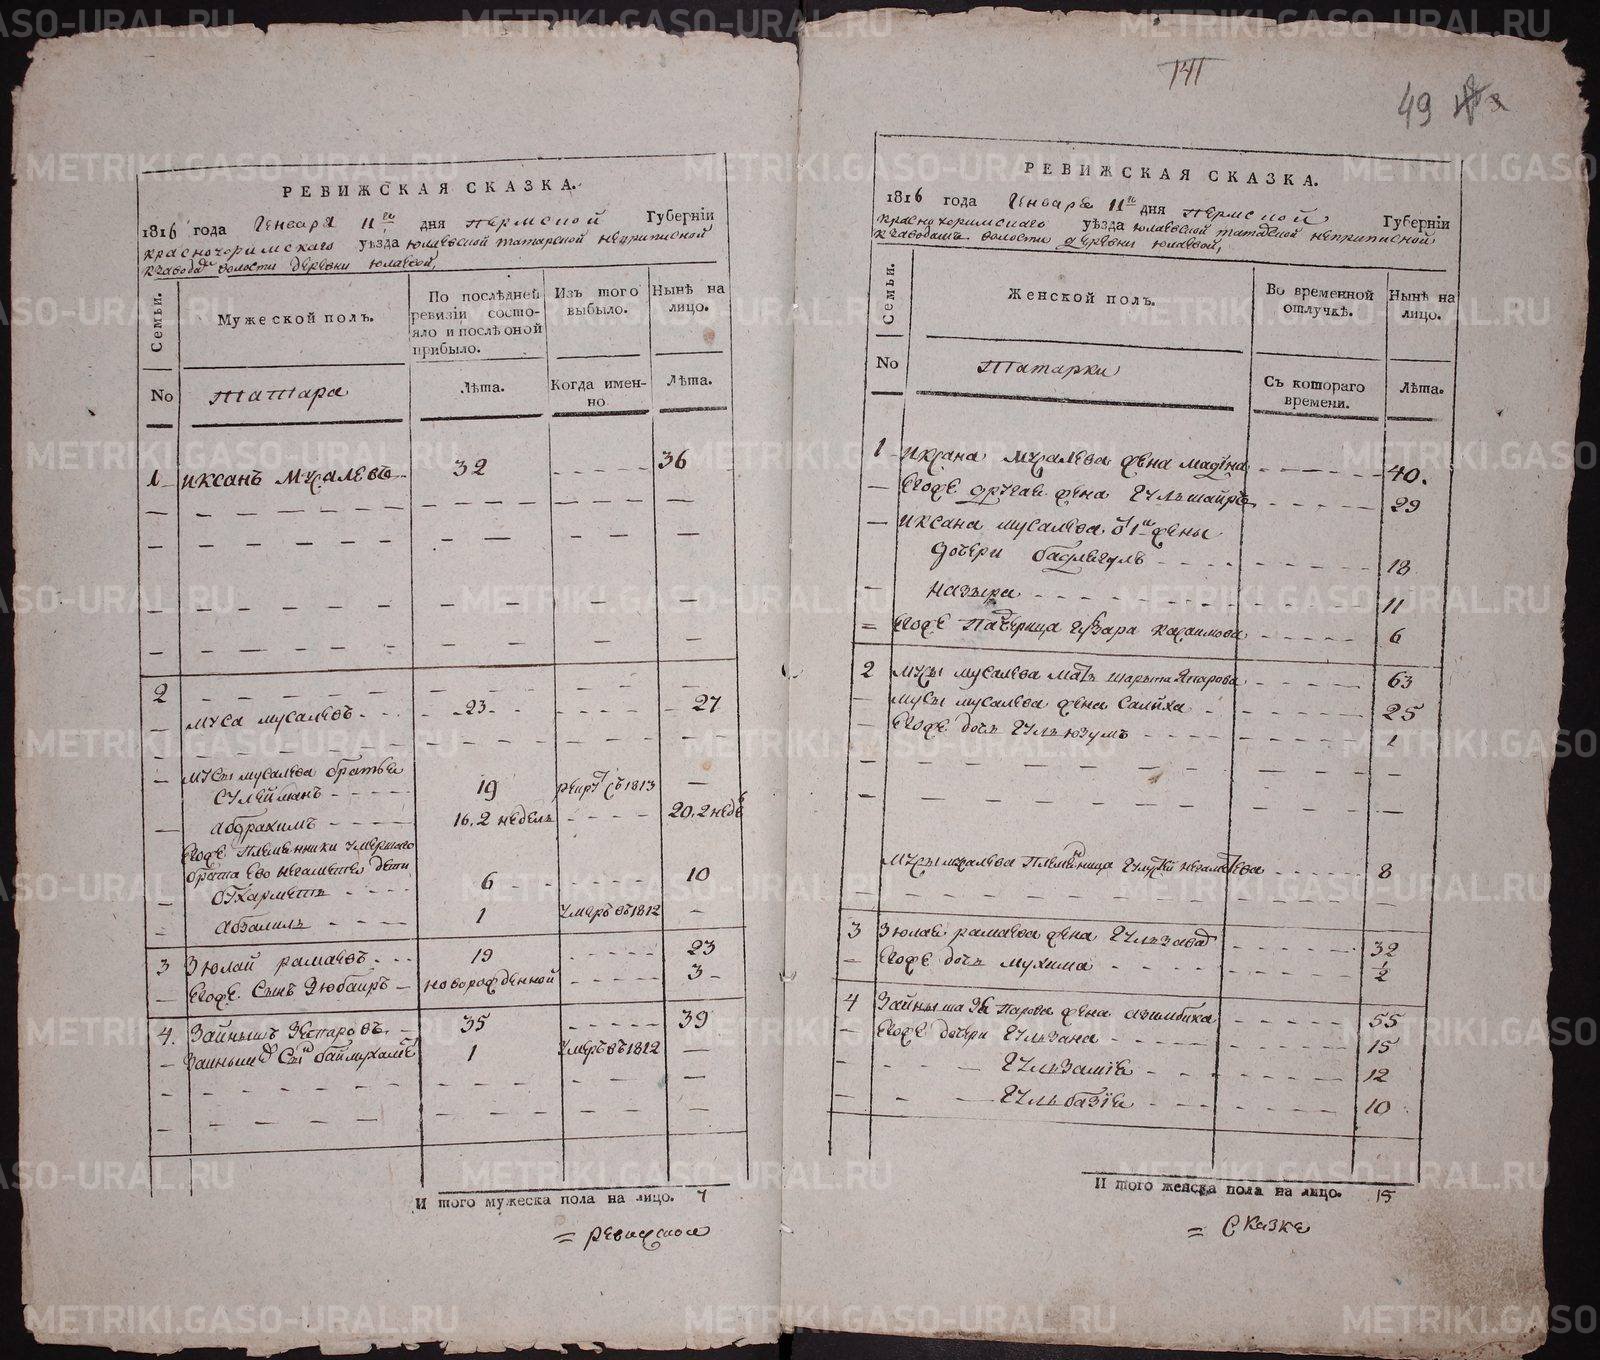 РЕВИЖСКАЯ СКАЗКА.
1816 года Генваря 11го дня пермской Губерніи
красноуфимскаго уѣзда юлаевской татарской неприписной
к заводам волости деревни юлаевой,
Семьи.
Мужеской полъ.
По послѣдней ревизіи состо-
яло и послѣ оной
прибыло.
Изъ того
выбыло.
Нынѣ на
лицо.
No
татара
Лѣта.
Когда имен-
но
Лѣта.
1 иксанъ Мусалевъ 32 36
2
муса мусалевъ 23 27
мусы мусалева братья
Сулейманъ 19 рекрут съ 1813
абдрахимъ 16. 2 недель 20. 2 неде
Егоже племенники умершаго
брата его негаметя дети
6 10
абзалилъ 1 умеръ въ 1812
3 Зюлай рамаевъ 19 23
Егоже Сынъ Зюбаиръ новорожденной 3
4. Зайнышъ 35 39
Сын баймухамет 1 умеръ въ 1812
И того мужеска пола на лицо. 7
= ревижской
141
49
РЕВИЖСКАЯ СКАЗКА.
1816 года Генваря 11го дня пермской Губерніи
красноуфимскаго уѣзда юлаевской татарской неприписной
к заводамъ волости деревни юлаевой,
Семьи.
Женской полъ.
Во временной
отлучкѣ.
Нынѣ на
лицо.
No
Татарки
Съ котораго
времени.
Лѣта.
1 Мусалева жена мадина 40.
Егоже другая жена Гульшаира 29
иксана мусалева от 1й жены
дочери 18
назыра 11
Егоже падчерица 6
2 Мусы мусалева мать 63
мусы мусалева жена салиха 25
Егоже дочь Гульюзумъ 1
Мусы мусалева племянница 8
3 Зюлая рамаева жена 32
Егоже дочь мухима 1/2
4 жена азимбика 55
Егоже дочери Гульзана 15
Гульзамія 12
Гульбазія 10
И того женска пола на лицо. 15
= Сказке